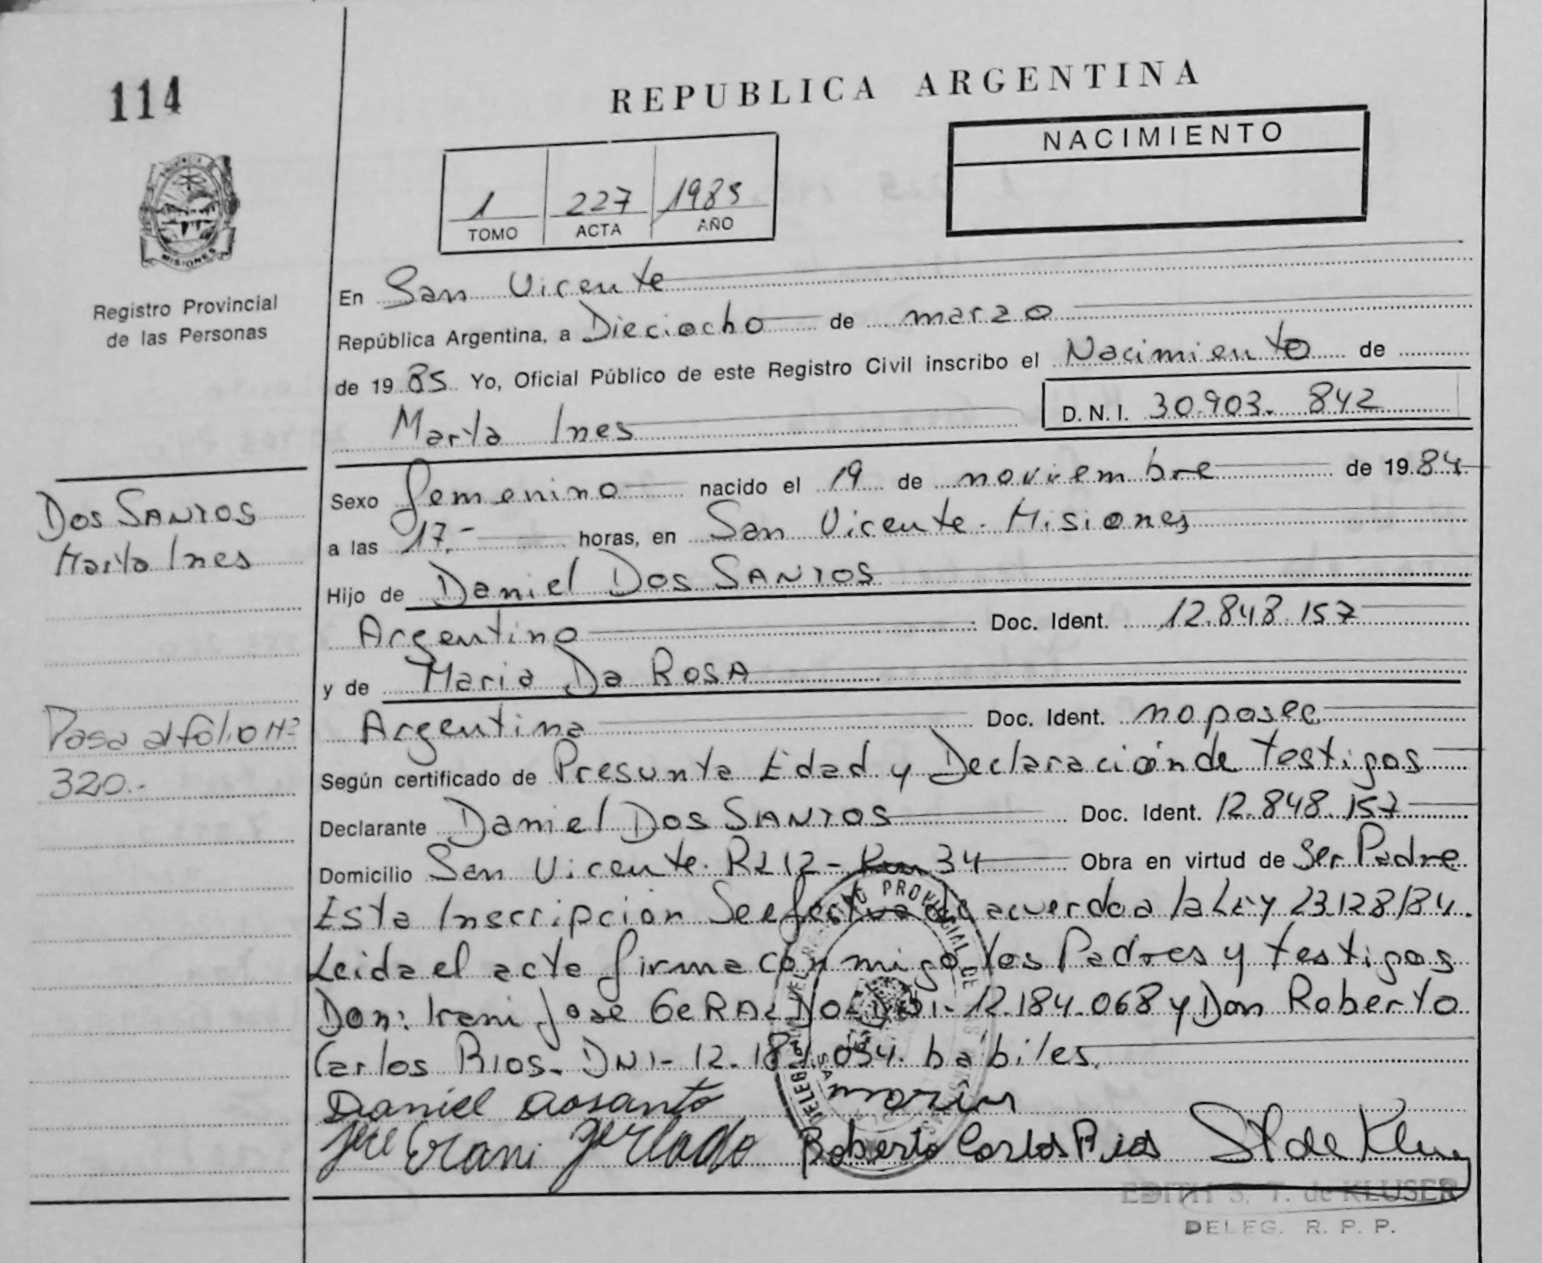 114
REPUBLICA ARGENTINA
NACIMIENTO
1 227 1985
TOMO ACTA AÑO
MISIONES
Registro Provincial
de las Personas
En San Vicente
República Argentina, a Dieciocho de marzo
de 1985 Yo, Oficial Público de este Registro Civil inscribo el Nacimiento de
Marta Ines D.N.I. 30.903.842
Dos SANTOS
Marta Ines
Sexo femenino nacido el 19 de noviembre de 1984
a las 17.- horas, en San Vicente. Misiones
Hijo de Daniel Dos SANTOS
Argentino Doc. Ident. 12.848.157
y de Maria Da ROSA
Pasa al folio Nº
320.-
Argentina Doc. Ident. no posee
Según certificado de Presunta Edad y Declaración de testigos
Declarante Daniel Dos SANTOS Doc. Ident. 12.848.157
Domicilio San Vicente. R 12 - Km 34 Obra en virtud de Ser Padre
Esta Inscripcion Se efectua de acuerdo a la Ley 23.128/84.
Leida el acta firma con migo los Padres y testigos
Don: Irani Jose GeRALDO DNI- 12.184.068 y Don Roberto
Carlos Rios. DNI- 12. 034. habiles.
Daniel dosanto
Roberto Carlos Rios
EDITH S. T. de KLUSER
DELEG. R. P. P.